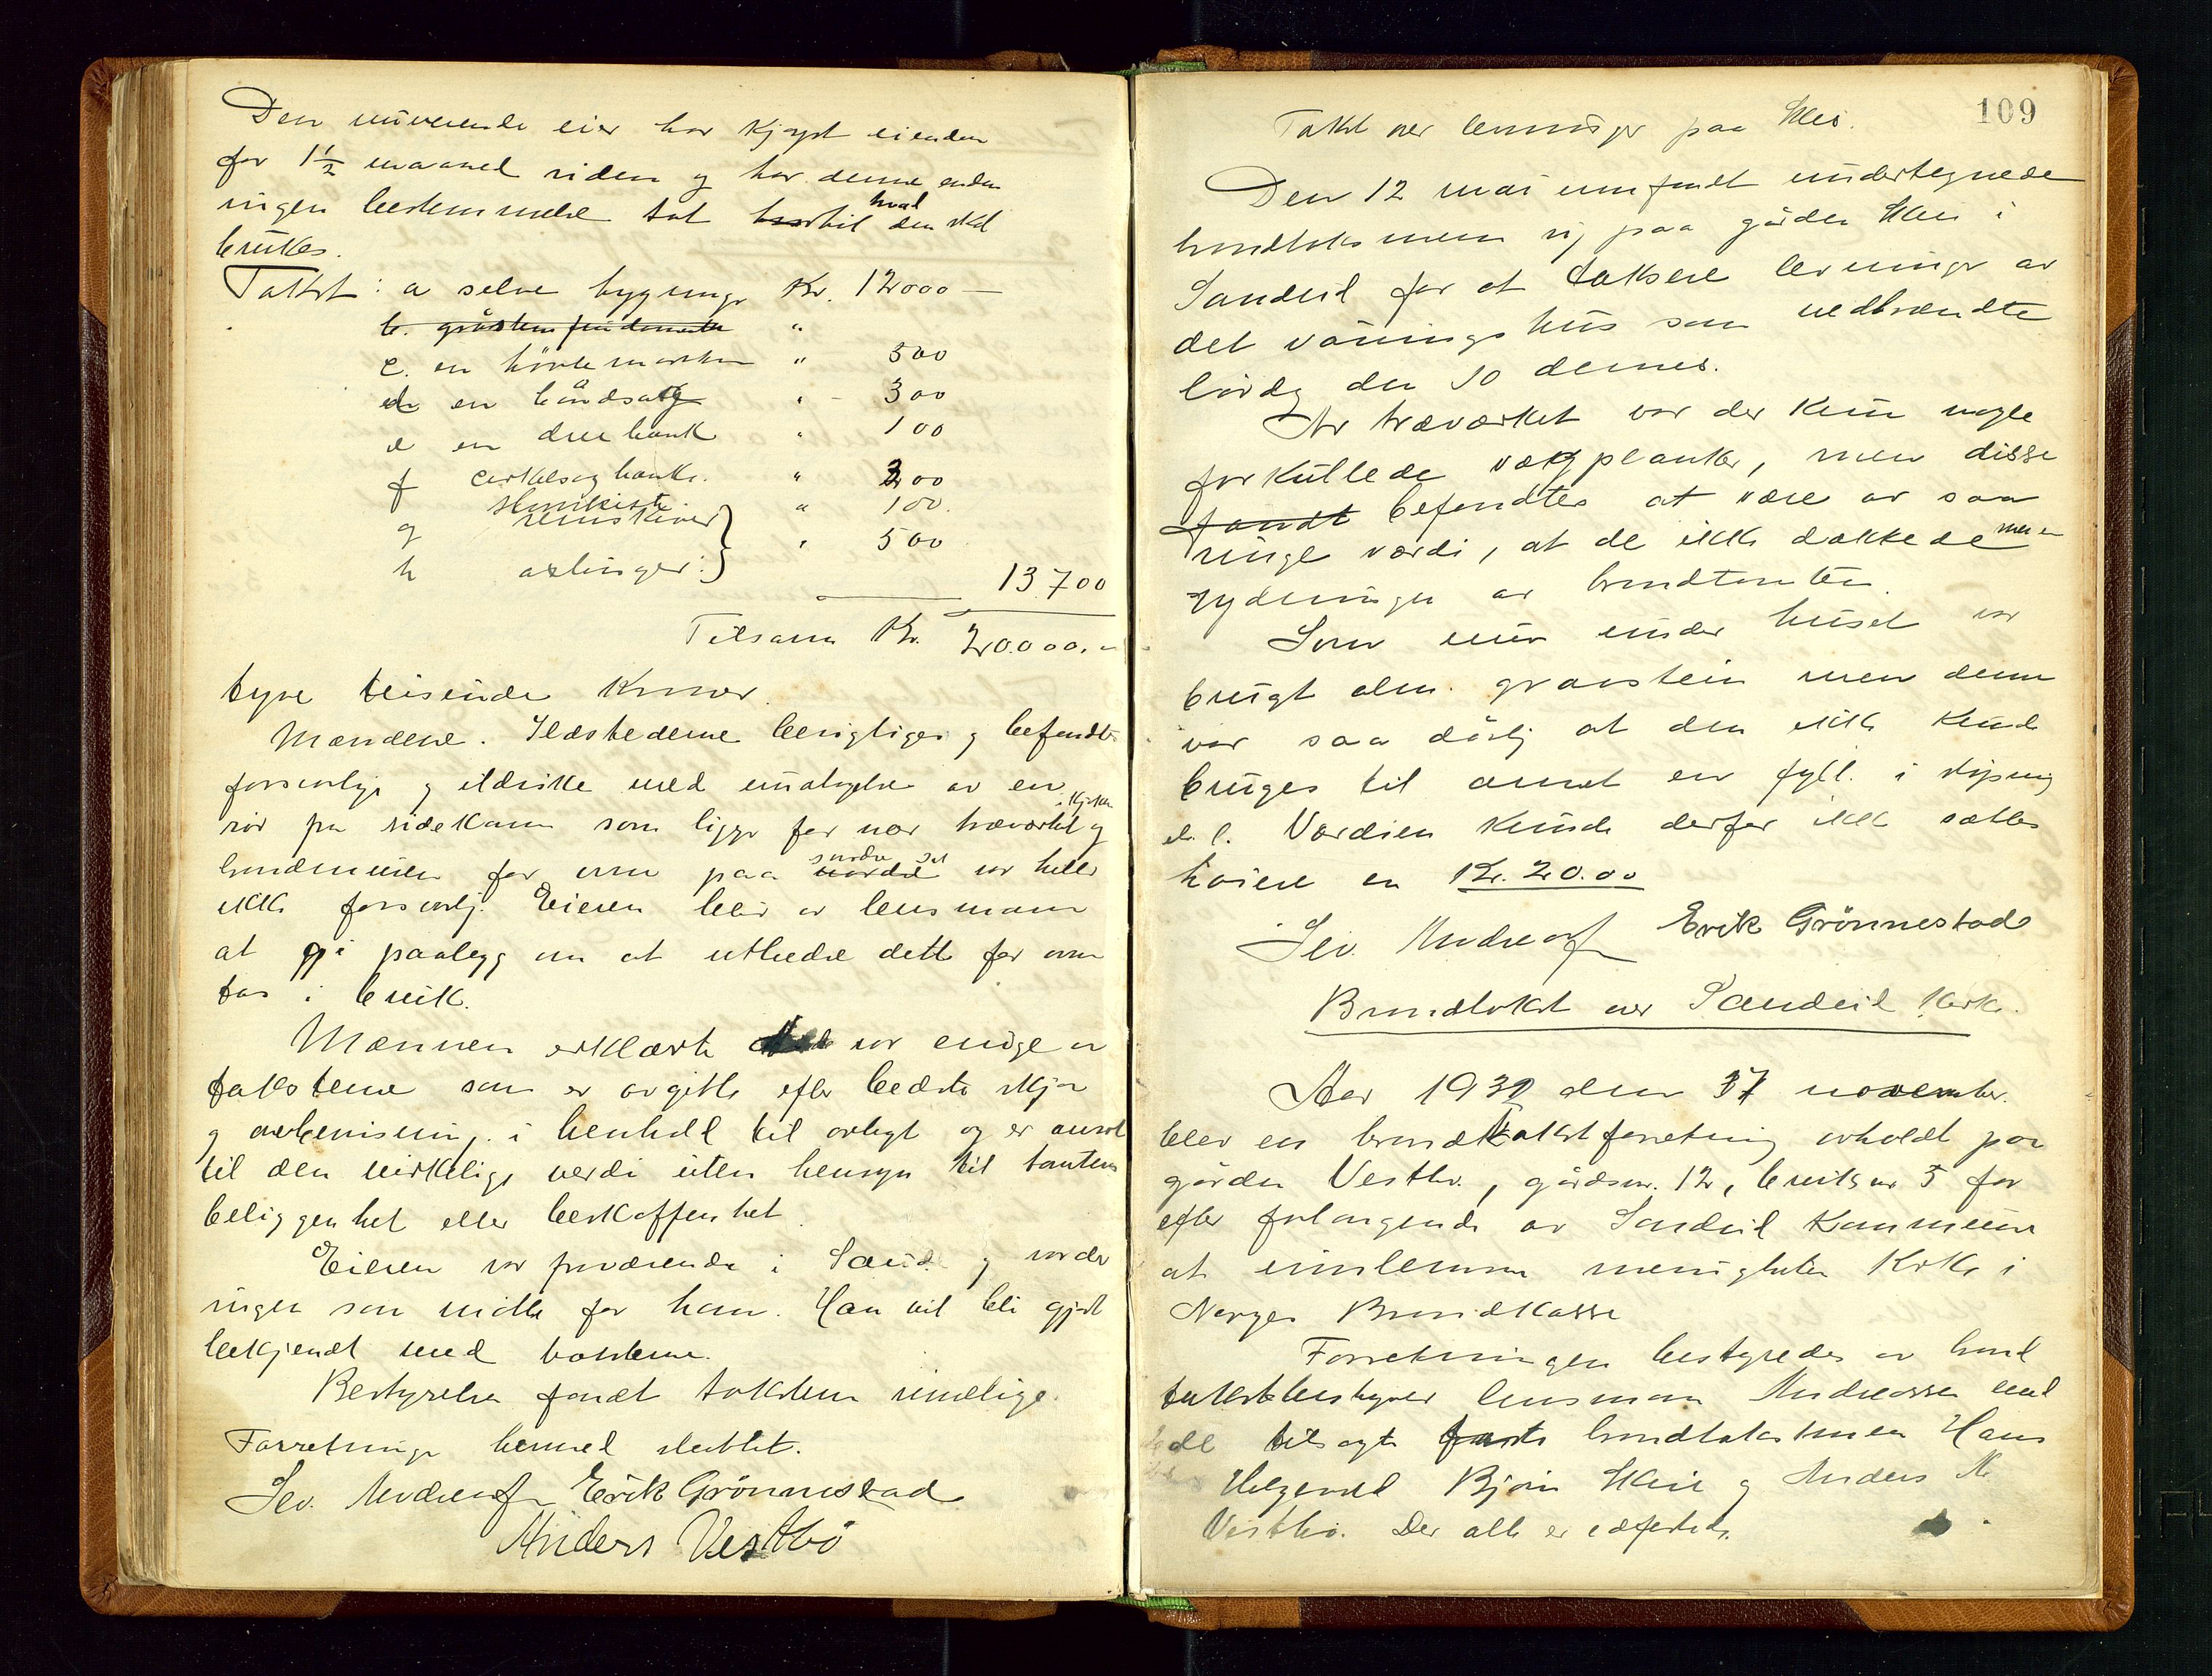 Den nuverende eier har kjøpt eiendom
for 1 1/2 maaned siden og har denne enda
ingen bestemmelse tat hvad til den skal
brukes.
Takst: a selve bygninge Kr. 12000 —
b. gråstens fundamente "
c. en hövlemaskin " 500
d en båndsag " 300
e en dreiebænk " 100
f cirkelsagbænk. " 200
slumkiste " 100.
g remskiver } " 500
h axlinger. }
13700
Tilsam Kr. 20.000.-
tyve tusinde kroner.
Mændene. Ildstederne besigtiges og befandtes
forsvarlige og ildsikke med undtagelse av en
rör fra sidekam som ligger for nær træværket og
i kjøken
brandmuren for ovn paa nordre var heller
søndre sal
ikke forsvarlig. Eieren blir av lensmann
at gi paalegg om at utbedre dette før ovn
tas i bruk.
Mænnen erklærte var enige i
taksterne som er avgitte efter bedste skjøn
og overbevisning i henhold til avlagt og er ansat
til den virkelige verdi uten hensyn til tomtens
beliggenhet eller beskaffenhet.
Eieren var fraværende i Saud og var der
ingen som møtte for ham. Han vil bli gjort
bekjendt med taksterne.
Bestyrelsen fandt taksten rimelige.
Forretninge hermed sluttet.
Sev. Andreassen Erik Grönnestad
Anders Vestbö
109
Takst over levninger paa Skei.
Den 12 mai innfandt undertegnede
brandtaksmenn sig paa gården Skei i
Sandeid for at taksere levninger av
det våningshus som nedbrændte
lördag den 10 dennes.
Av træværket var der kun nogle
forkullede vægplanker, men disse
fandt befandtes at være av saa
ringe værdi, at de ikke dækkede mer en
rydninger av brandtomten.
Som mur under huset var
brugt alm. graastein men denne
var saa dårlig at den ikke kunde
bruges til annet en fyll. i
el. l. Værdien kunde derfor ikke sættes
høiere en Kr. 20.00
Sev. Andreassen Erik Grönnestad
Brandtakst over Sandeid Kirke.
Aar 1931 den 27 november.
blev en brandtakstforretning avholdt paa
gården Vestbö, gårdsnr. 12, bruksnr 5 for
efter forlangende av Sandeid Kommune
at innlemme menigheten Kirke i
Norges Brandkasse
Forretningen bestyredes av brand
takstbestyrer lensmann Andreassen med
de tilsagte faste brandtakstmenn Hans
Helgevold Bjørn Skeie og Anders K.
Vestbö. Der alle er edfestede.